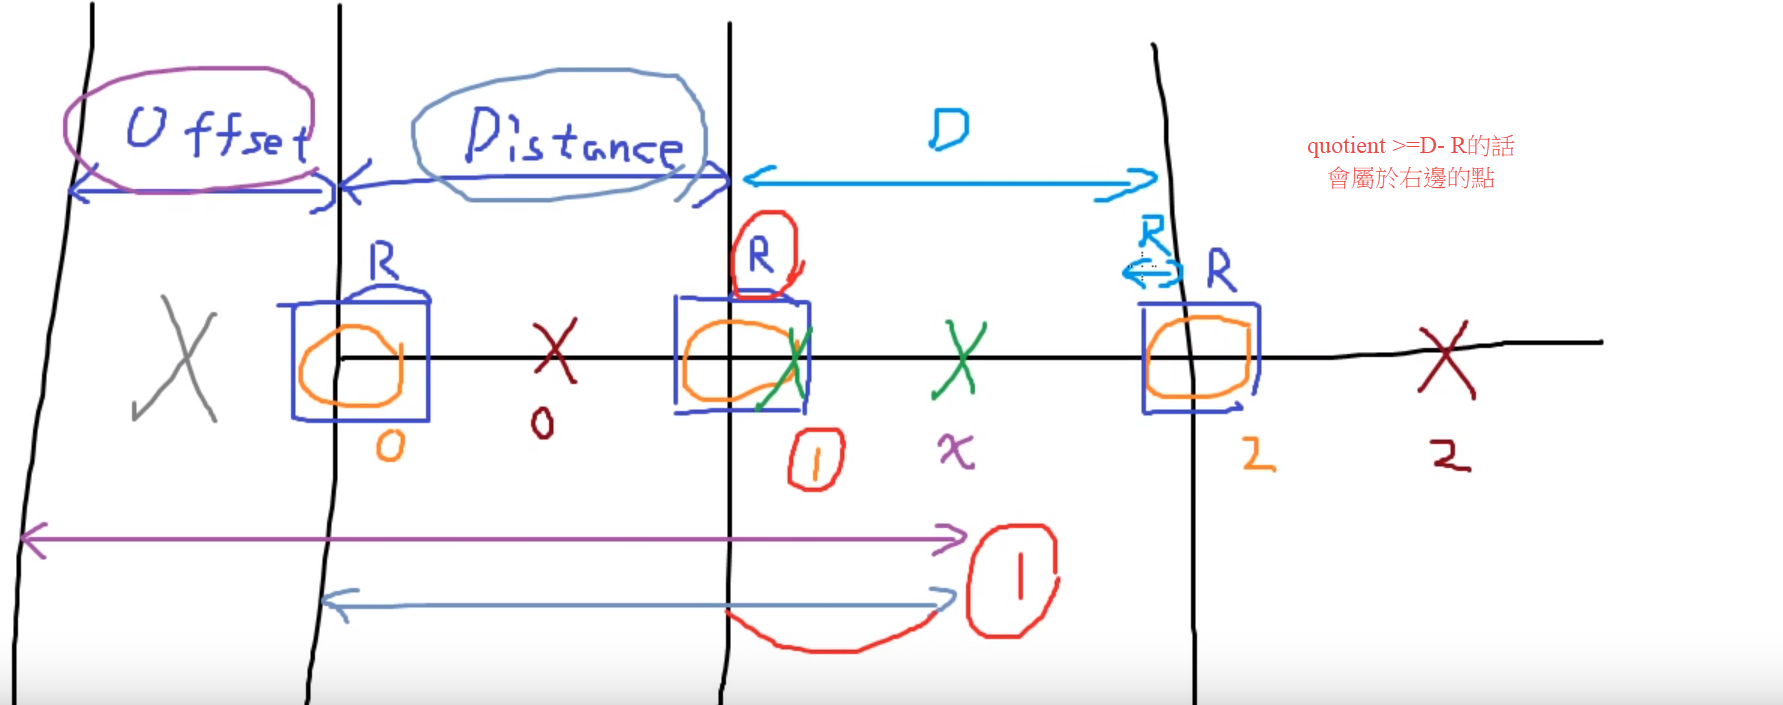 Offset
Distance
D
quotient >=D- R的話
會屬於右邊的點
R
R
R
R
0
0
1
x
2
2
1